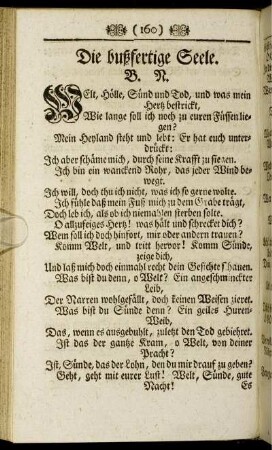 ( 160 )
Die bußfertige Seele.
B. N.
WElt, Hölle, Sünd und Tod, und was mein
Hertz bestrickt,
Wie lange soll ich noch zu euren Füssen lie-
gen?
Mein Heyland steht und lebt: Er hat euch unter-
drückt:
Ich aber schäme mich, durch seine Krafft zu siegen.
Ich bin ein wanckend Rohr, das jeder Wind be-
wegt.
Ich will, doch thu ich nicht, was ich so gerne wolte.
Ich fühle daß mein Fuß mich zu dem Grabe trägt,
Doch leb ich, als ob ich niemahlen sterben solte.
O allzufeiges Hertz! was hält und schrecket dich?
Wem soll ich doch hinfort, mir oder andern trauen?
Komm Welt, und tritt hervor! Komm Sünde,
zeige dich,
Und laß mich doch einmahl recht dein Gesichte schauen.
Was bist du denn, o Welt? Ein angeschminckter
Leib,
Der Narren wohlgefällt, doch keinen Weisen zieret.
Was bist du Sünde denn? Ein geiles Huren-
Weib,
Das, wenn es ausgebuhlt, zuletzt den Tod gebiehret.
Ist das der gantze Kram, o Welt, von deiner
Pracht?
Ist, Sünde, das der Lohn, den du mir drauf zu geben?
Geht, geht mit eurer Lust! Welt, Sünde, gute
Nacht! Es